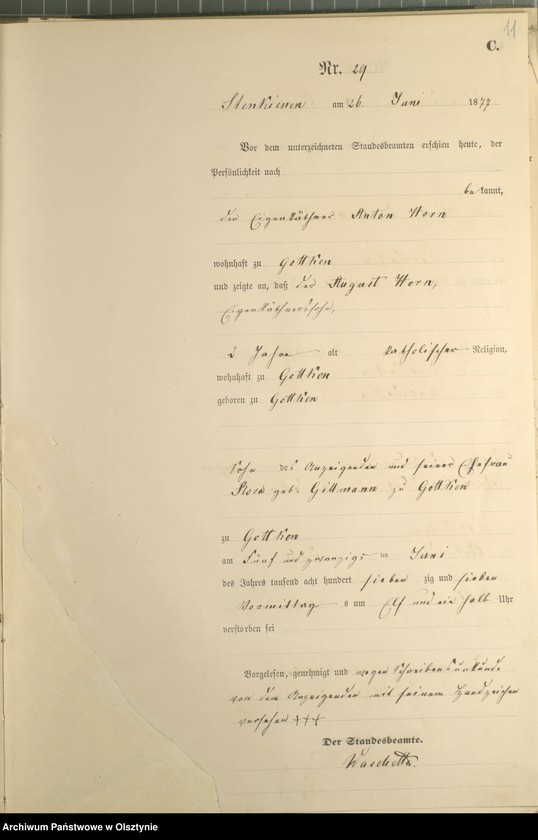 11
C.
Nr. 29
Stenkienen am 26. Juni 1877
Vor dem unterzeichneten Standesbeamten erschien heute, der
Persönlichkeit nach
be kannt,
der Eigenkäthner Anton Horn
wohnhaft zu Gottken
und zeigte an, daß der August Horn,
Eigenkäthnerssohn,
2 Jahre alt katholischer Religion,
wohnhaft zu Gottken
geboren zu Gottken
Sohn des Anzeigenden und seiner Ehefrau
Rosa geb. Gillmann zu Gottken
zu Gottken
am Fünf und zwanzigs ten Juni
des Jahres tausend acht hundert sieben zig und sieben
Vormittag s um Elf und ein halb Uhr
verstorben sei
Vorgelesen, genehmigt und wegen Schreibensunkunde
von dem Anzeigenden mit seinem Handzeichen
versehen +++
Der Standesbeamte.
Archiwum Państwowe w Olsztynie